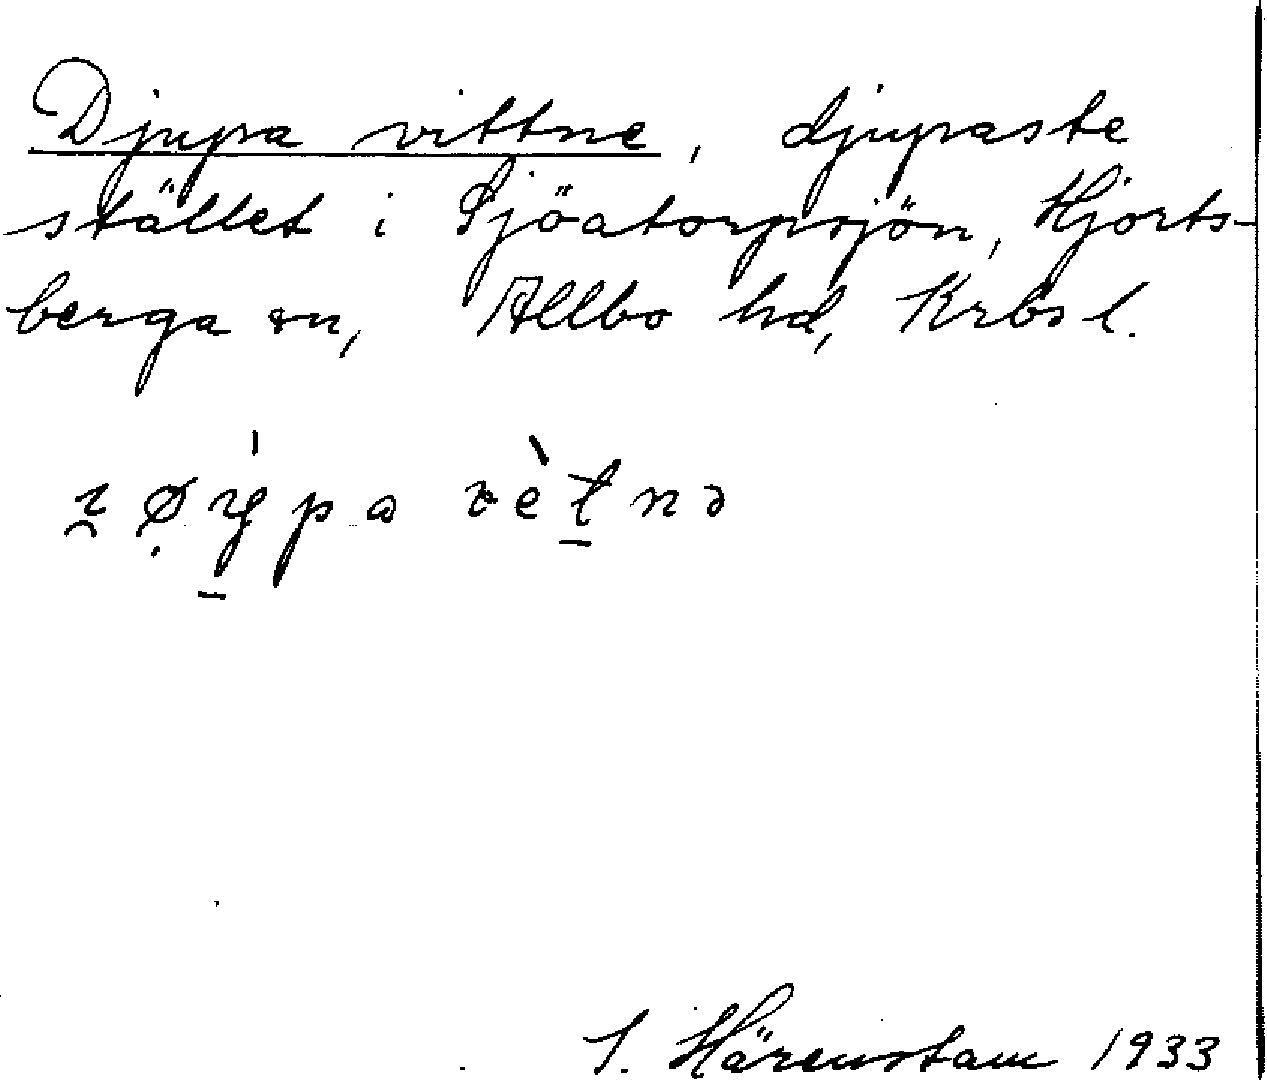 Djupa vittne, djupaste
stället i Sjöatorpsjön, Hjorts-
berga sn, Allbo hd, Krbs l.
Härenstam 1933